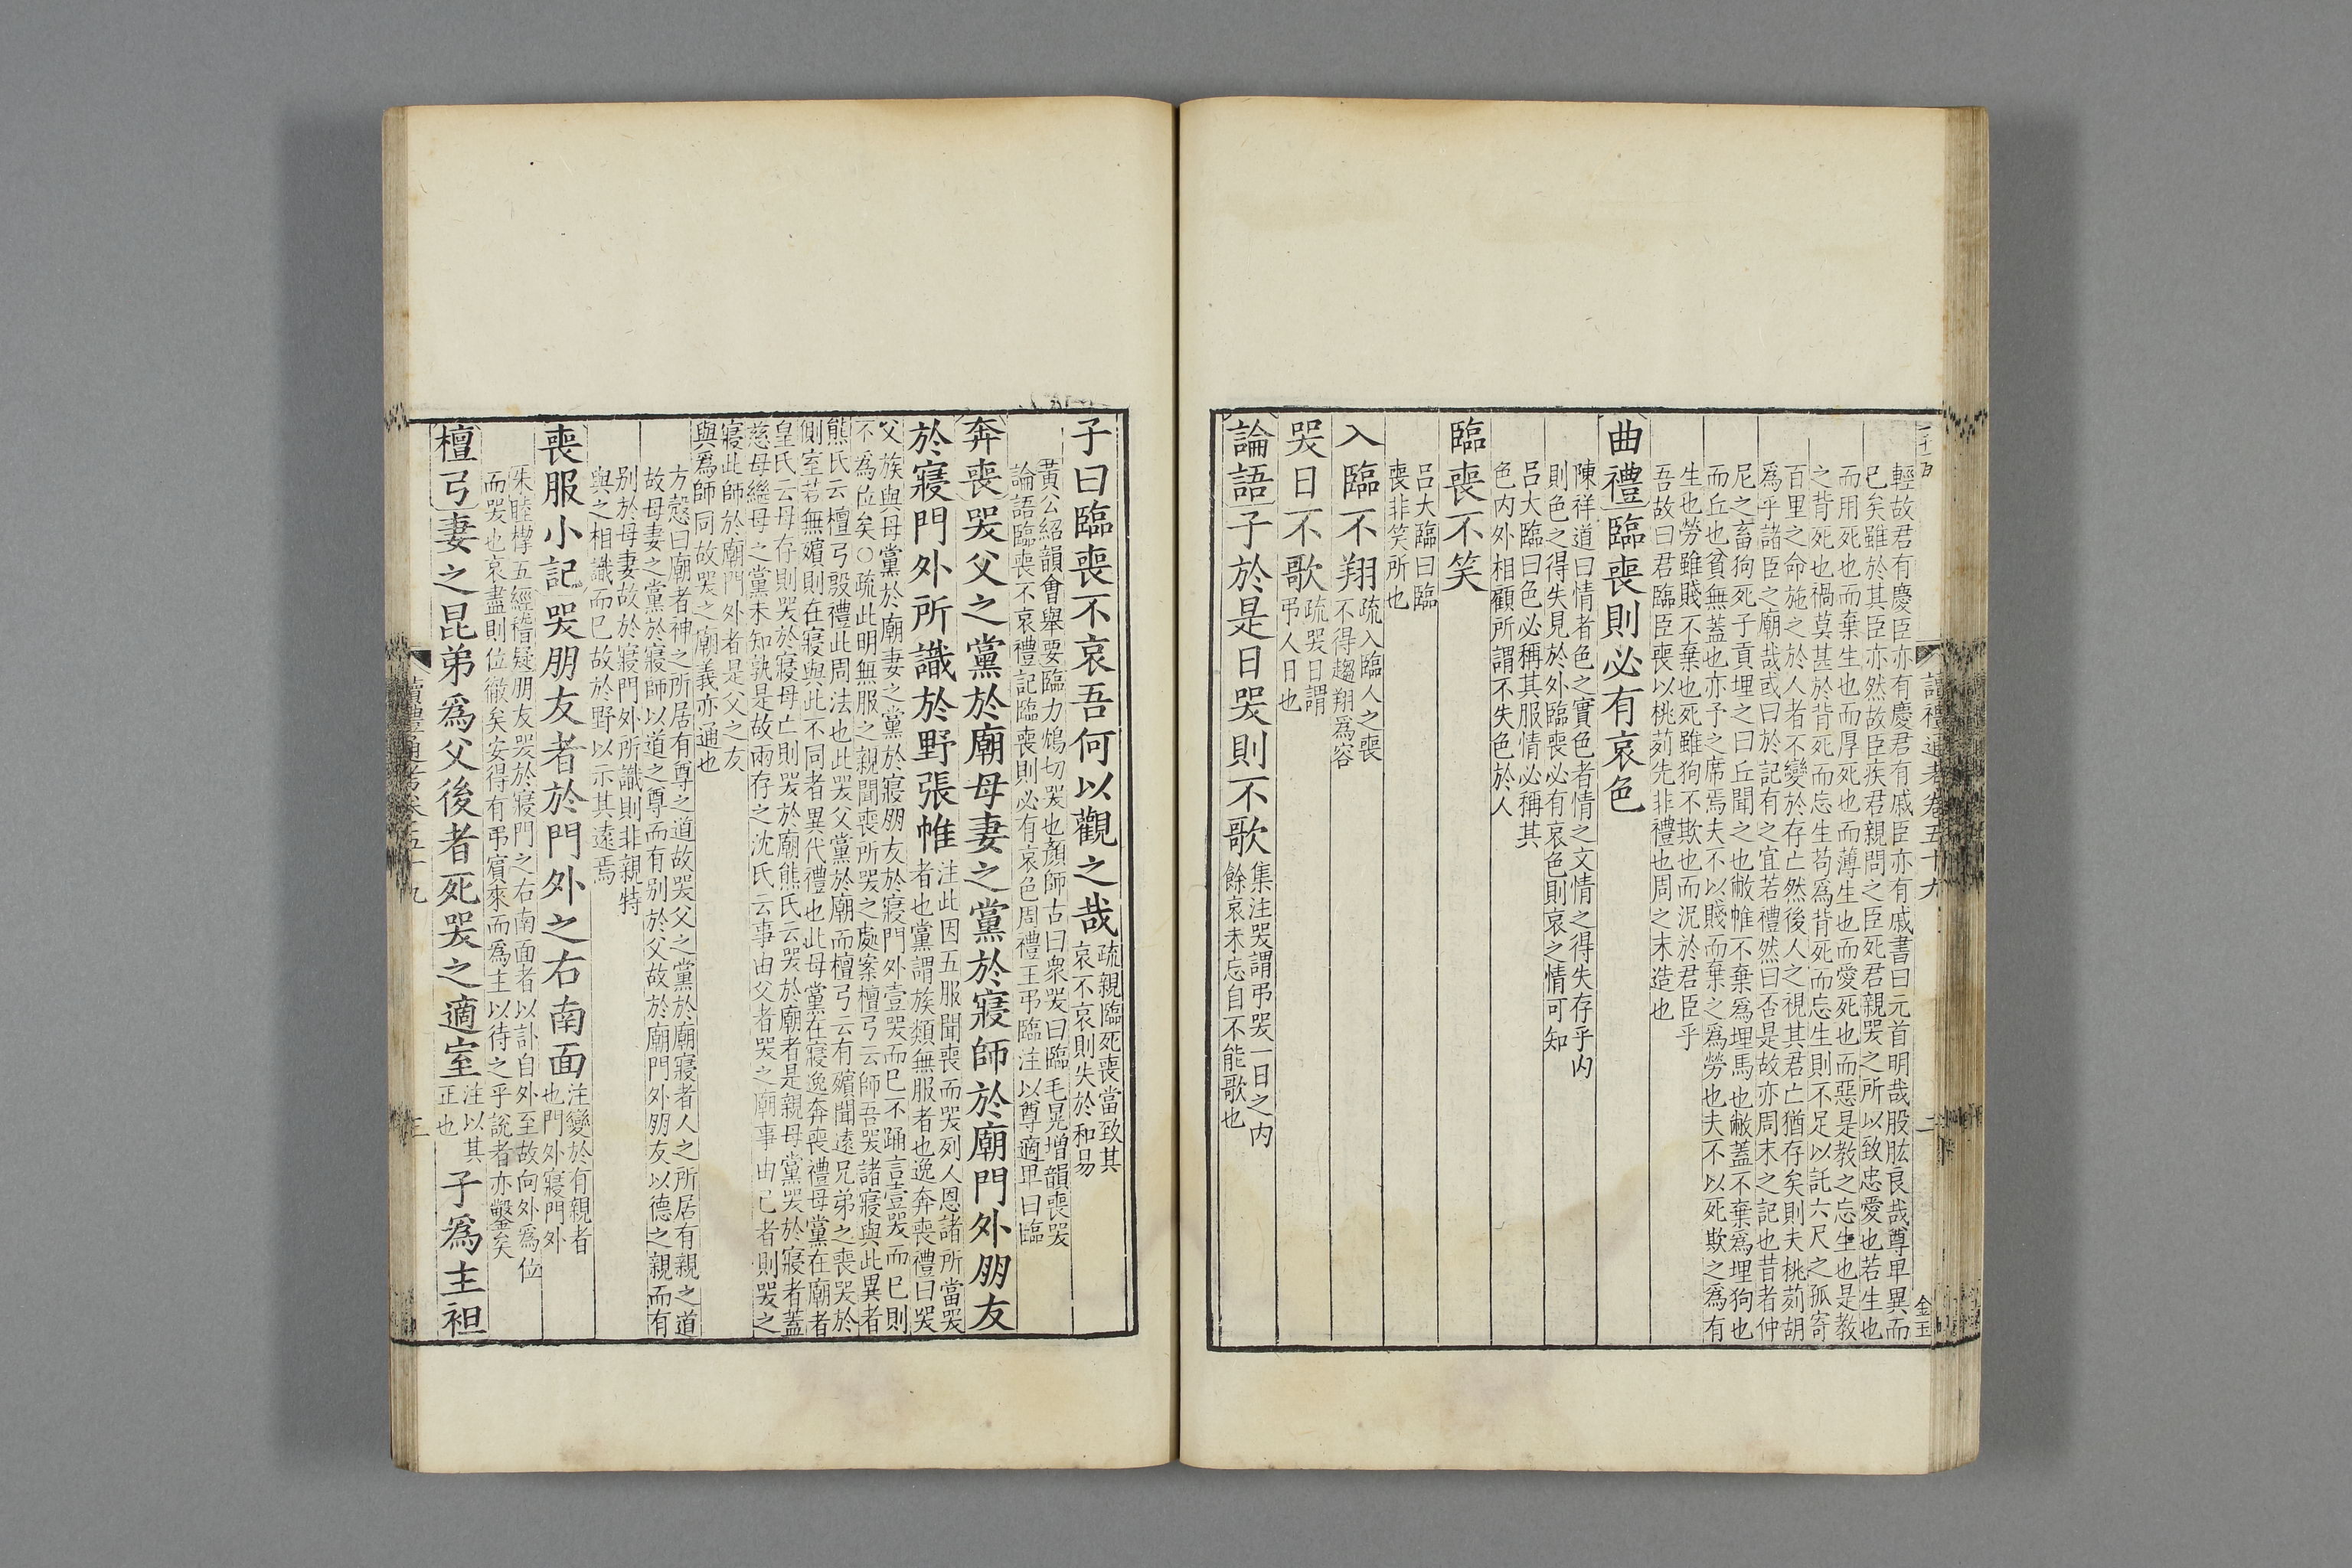 讀禮通考卷五十九
二
金玉
輕故君有慶臣亦有慶君有戚臣亦有戚書曰元首明哉股肱良哉尊卑異而
已矣雖於其臣亦然故臣疾君親問之臣死君親哭之所以致忠愛也若生也
而用死也而棄生也而厚死也而薄生也而愛死也而惡是教之忘生也是教
之背死也禍莫甚於背死而忘生苟爲背死而忘生則不足以託六尺之孤寄
百里之命施之於人者不變於存亡然後人之視其君亡猶存矣則夫桃茢胡
爲乎諸臣之廟哉或曰於記有之宜若禮然曰否是故亦周末之記也昔者仲
尼之畜狗死子貢埋之曰丘聞之也敝帷不棄爲埋馬也敝蓋不棄爲埋狗也
而丘也貧無蓋也亦予之席焉夫不以賤而棄之爲勞也夫不以死欺之爲有
生也勞雖賤不棄也死雖狗不欺也而況於君臣乎
吾故曰君臨臣喪以桃茢先非禮也周之末造也
曲禮臨喪則必有哀色
陳祥道曰情者色之實色者情之文情之得失存乎内
則色之得失見於外臨喪必有哀色則哀之情可知
呂大臨曰色必稱其服情必稱其
色内外相顧所謂不失色於人
臨喪不笑
呂大臨曰臨
喪非笑所也
入臨不翔
疏入臨人之喪
不得趨翔爲容
哭日不歌
疏哭日謂
弔人日也
論語子於是日哭則不歌
集注哭謂弔哭一日之内
餘哀未忘自不能歌也
子曰臨喪不哀吾何以觀之哉
疏親臨死喪當致其
哀不哀則失於和易
黃公紹韻會舉要臨力鴆切哭也顏師古曰衆哭曰臨毛晃增韻喪哭
論語臨喪不哀禮記臨喪則必有哀色周禮王弔臨注以尊適卑曰臨
奔喪哭父之黨於廟母妻之黨於寢師於廟門外朋友
於寢門外所識於野張帷
注此因五服聞喪而哭列人恩諸所當哭
者也黨謂族類無服者也逸奔喪禮曰哭
父族與母黨於廟妻之黨於寢朋友於寢門外壹哭而已不踊言壹哭而已則
不爲位矣○疏此明無服之親聞喪所哭之處案檀弓云師吾哭諸寢與此異者
熊氏云檀弓殷禮此周法也此哭父黨於廟而檀弓云有殯聞遠兄弟之喪哭於
側室若無殯則在寢與此不同者異代禮也此母黨在寢逸奔喪禮母黨在廟者
皇氏云母存則哭於寢母亡則哭於廟熊氏云哭於廟者是親母黨哭於寢者蓋
慈母繼母之黨未知孰是故兩存之沈氏云事由父者哭之廟事由己者則哭之
寢此師於廟門外者是父之友
與爲師同故哭之廟義亦通也
方愨曰廟者神之所居有尊之道故哭父之黨於廟寢者人之所居有親之道
故母妻之黨於寢師以道之尊而有别於父故於廟門外朋友以德之親而有
别於母妻故於寢門外所識則非親特
與之相識而已故於野以示其遠焉
喪服小記哭朋友者於門外之右南面
注變於有親者
也門外寢門外
朱睦㮮五經稽疑朋友哭於寢門之右南面者以訃自外至故向外爲位
而哭也哀盡則位徹矣安得有弔賓來而爲主以待之乎說者亦鑿矣
檀弓妻之昆弟爲父後者死哭之適室
注以其
正也
子爲主袒
讀禮通考卷五十九
三